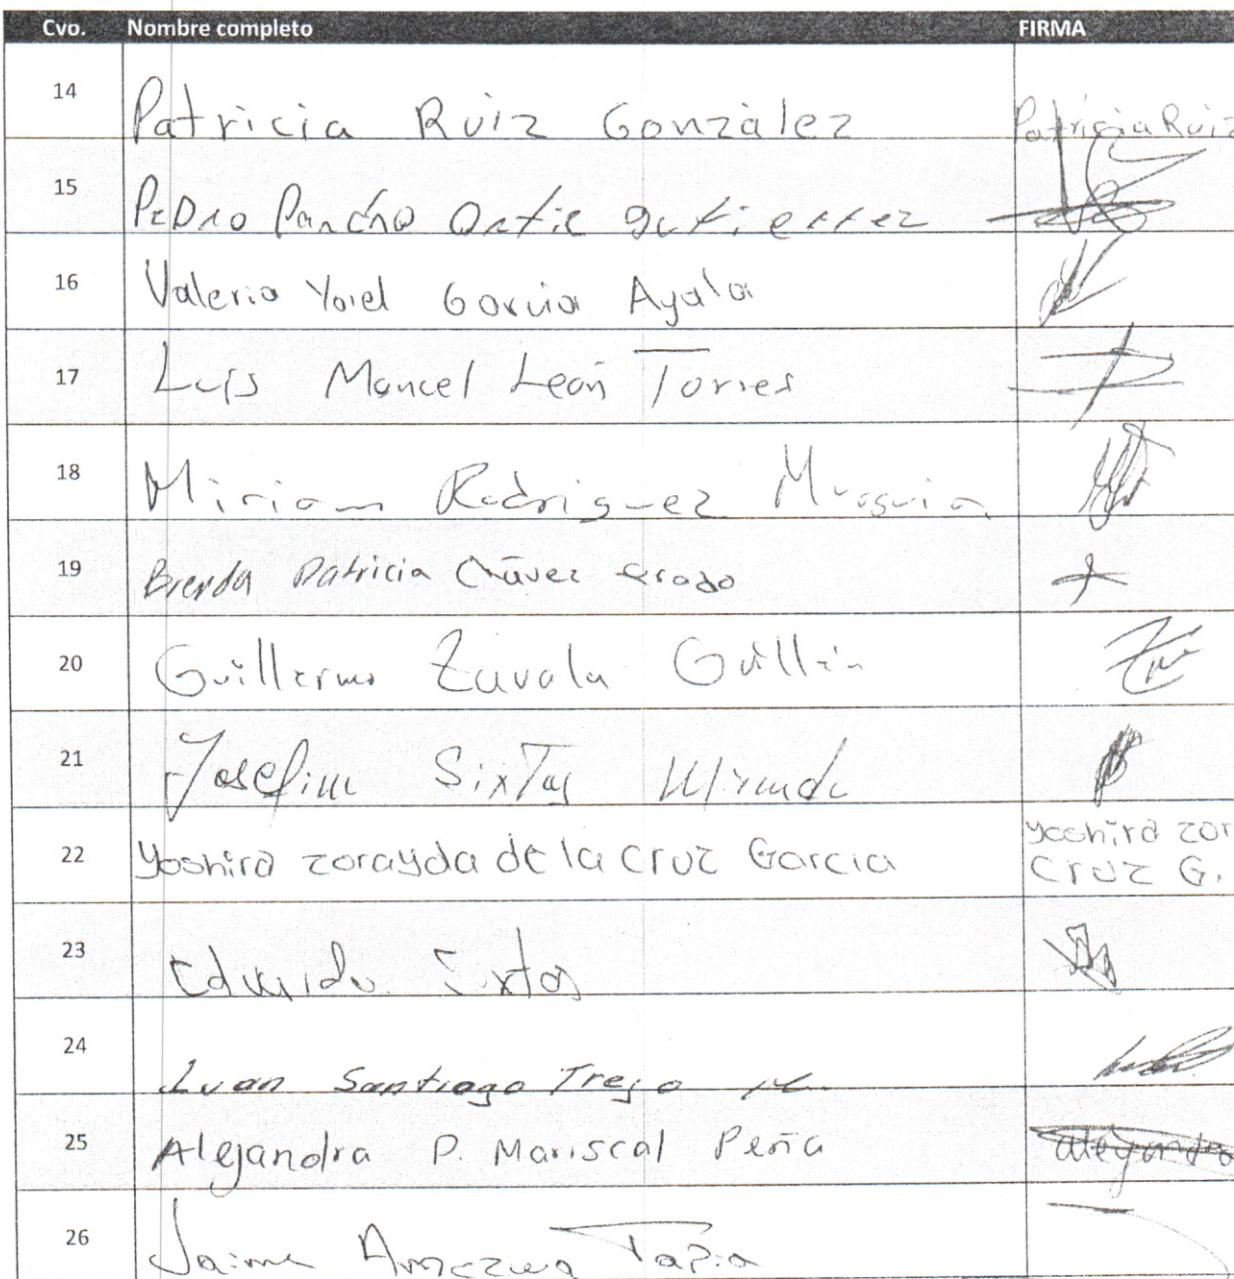 Cvo. Nombre completo FIRMA
14 Patricia Ruiz González Patricia Ruiz
15 Pedro Pancho Ortiz gutierrez
16 Valeria Yael Garcia Ayala
17 Luis Manuel León Torres
18 Miriam Rodriguez
19 Brenda Patricia Chávez
20 Guillermo Zavala Guillén
21 Josefina Sixtos Miranda
22 Yoshira zorayda de la cruz Garcia Yoshira zor
cruz G.
23 Eduardo Sixtos
24 Santiago Trejo
25 Alejandra P. Mariscal Peña alejandra
26 Jaime Tapia